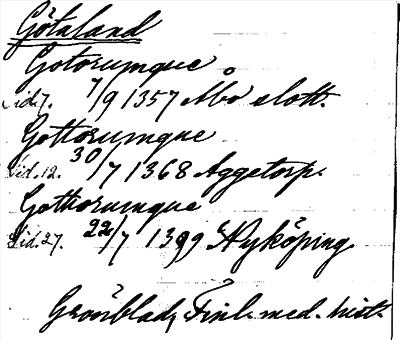 Götaland
Gotorumque
Sid. 7. 7/9 1357 Åbo slott.
Gottorumque
Sid. 12. 30/7 1368 Aggetorp.
Gothorumque
Sid. 27. 22/7 1399 Nyköping
Grönblad, Finl. med. hist.